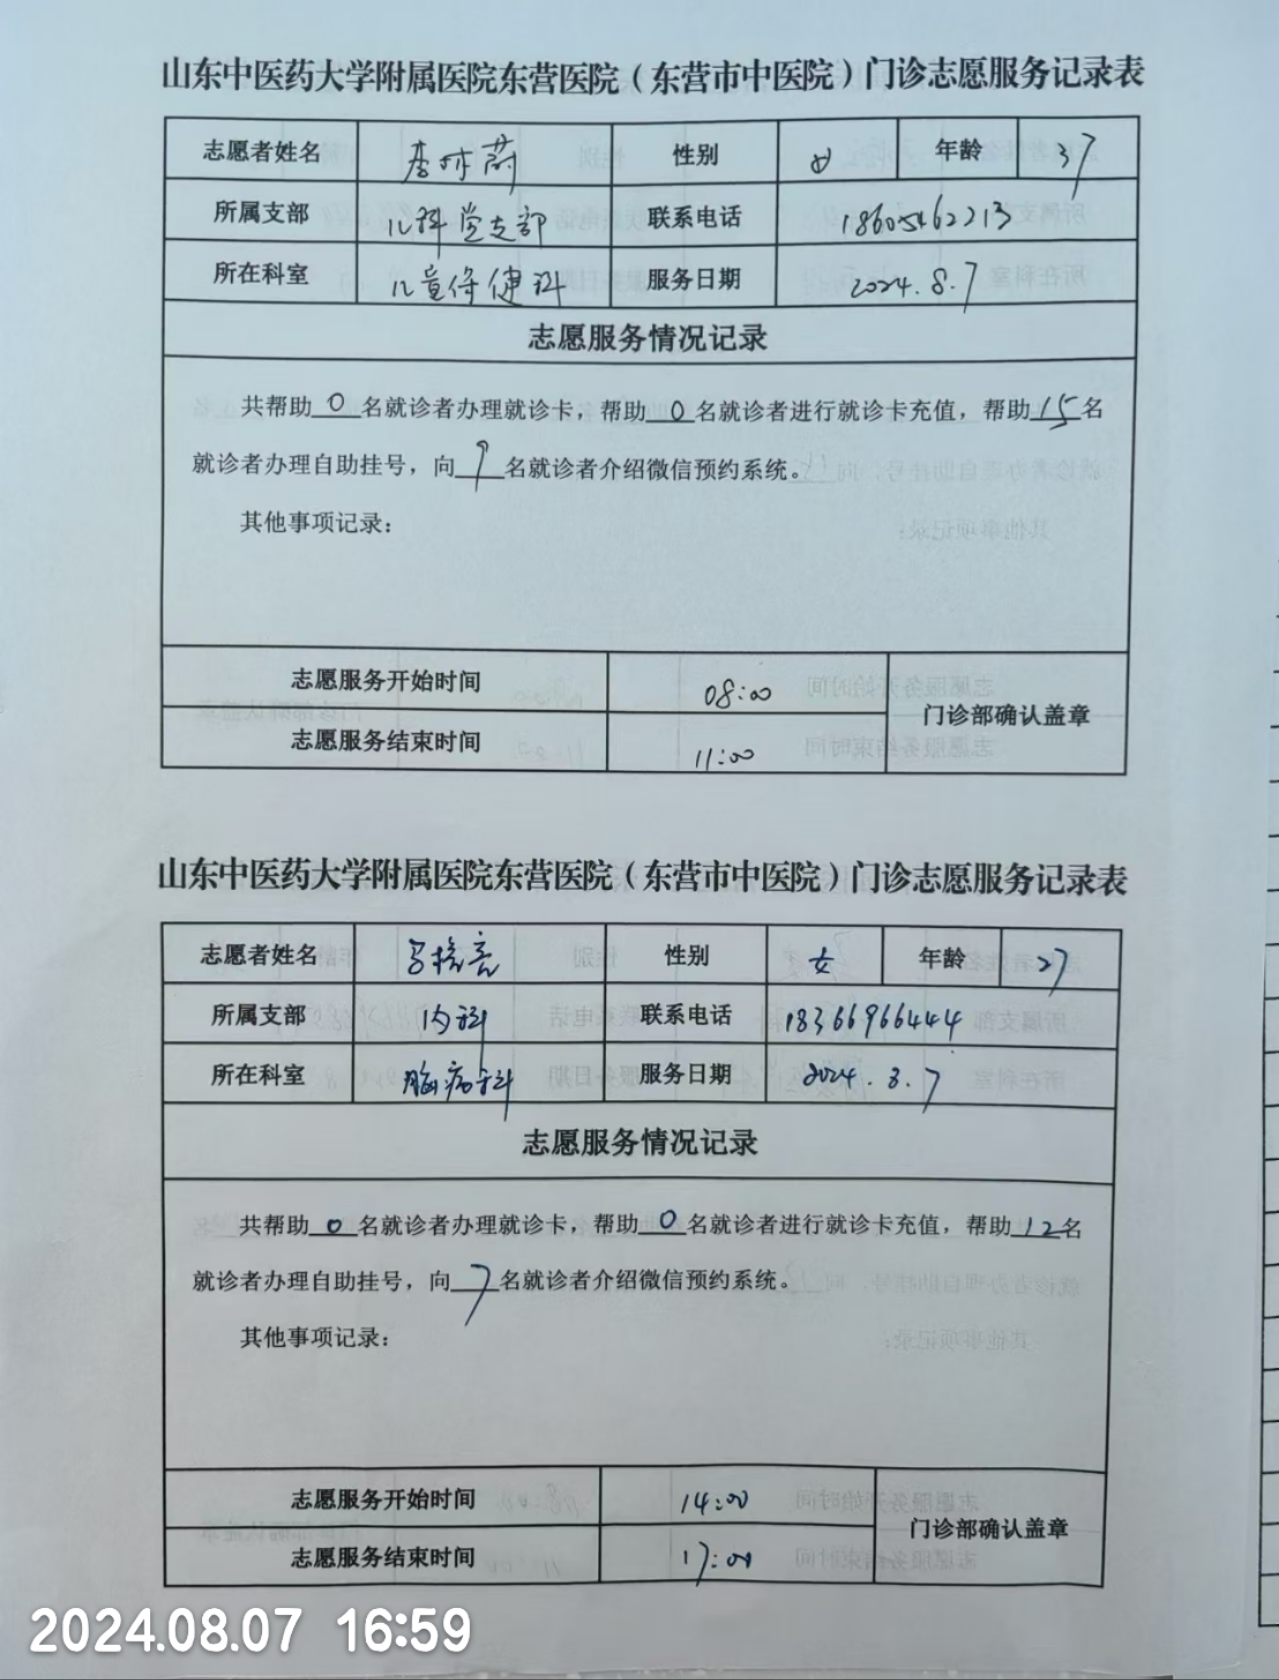 山东中医药大学附属医院东营医院（东营市中医院）门诊志愿服务记录表
志愿者姓名 李 蔚 性别 女 年龄 37
所属支部 儿科党支部 联系电话 18605462213
所在科室 儿童保健科 服务日期 2024.8.7
志愿服务情况记录
共帮助 0 名就诊者办理就诊卡，帮助 0 名就诊者进行就诊卡充值，帮助 15 名
就诊者办理自助挂号，向 9 名就诊者介绍微信预约系统。
其他事项记录：
志愿服务开始时间 08:00
门诊部确认盖章
志愿服务结束时间 11:00
山东中医药大学附属医院东营医院（东营市中医院）门诊志愿服务记录表
志愿者姓名 性别 女 年龄 27
所属支部 内科 联系电话 18366966444
所在科室 脑病科 服务日期 2024.8.7
志愿服务情况记录
共帮助 0 名就诊者办理就诊卡，帮助 0 名就诊者进行就诊卡充值，帮助 12 名
就诊者办理自助挂号，向 7 名就诊者介绍微信预约系统。
其他事项记录：
志愿服务开始时间 14:00
门诊部确认盖章
志愿服务结束时间 17:00
2024.08.07 16:59